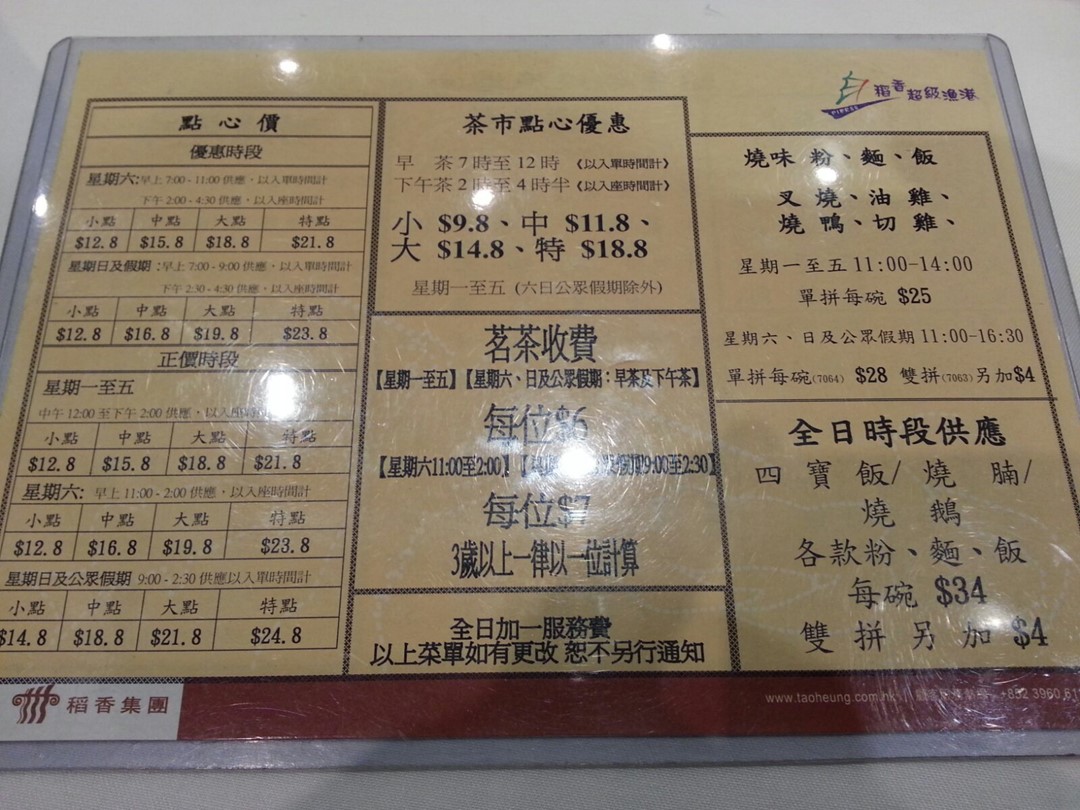 稻香超級漁港
EXPRESS
點心價
優惠時段
星期六:早上 7:00 - 11:00 供應，以入單時間計
下午 2:00 - 4:30 供應，以入座時間計
小點 中點 大點 特點
$12.8 $15.8 $18.8 $21.8
星期日及假期：早上 7:00 - 9:00 供應，以入單時間計
下午 2:30 - 4:30 供應，以入座時間計
小點 中點 大點 特點
$12.8 $16.8 $19.8 $23.8
正價時段
星期一至五
中午 12:00 至下午 2:00 供應，以入座時間計
小點 中點 大點 特點
$12.8 $15.8 $18.8 $21.8
星期六: 早上 11:00 - 2:00 供應，以入座時間計
小點 中點 大點 特點
$12.8 $16.8 $19.8 $23.8
星期日及公眾假期 9:00 - 2:30 供應以入單時間計
小點 中點 大點 特點
$14.8 $18.8 $21.8 $24.8
茶市點心優惠
早 茶 7 時至 12 時 《以入單時間計》
下午茶 2 時至 4 時半 《以入座時間計》
小 $9.8、中 $11.8、
大 $14.8、特 $18.8
星期一至五 (六日公眾假期除外)
茗茶收費
【星期一至五】【星期六、日及公眾假期：早茶及下午茶】
每位$6
【星期六11:00至2:00】【 假期9:00至2:30】
每位$7
3歲以上一律以一位計算
全日加一服務費
以上菜單如有更改 恕不另行通知
燒味 粉、麵、飯
叉 燒、油 雞、
燒 鴨、切 雞、
星期一至五 11:00-14:00
單拼每碗 $25
星期六、日及公眾假期 11:00-16:30
單拼每碗(7064) $28 雙拼(7063)另加$4
全日時段供應
四 寶 飯/ 燒 腩/
燒 鵝
各款粉、麵、飯
每碗 $34
雙 拼 另 加 $4
稻香集團
www.taoheung.com.hk +852 3960 61